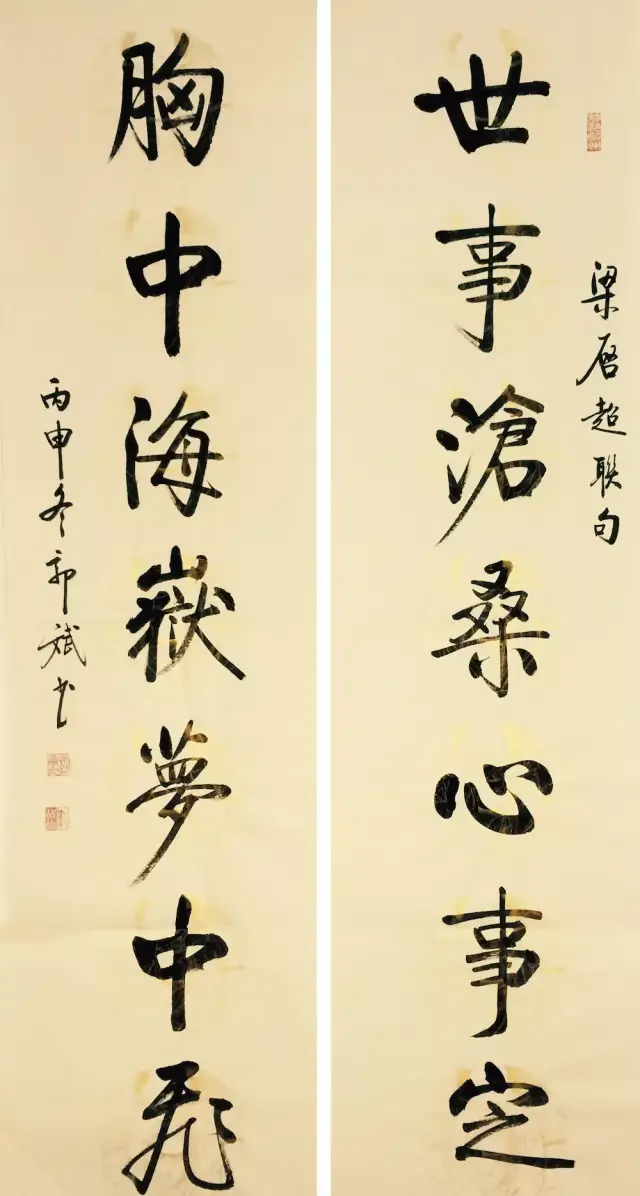 梁启超联句
世事滄桑心事定
胸中海嶽夢中飛
丙申冬郭斌书